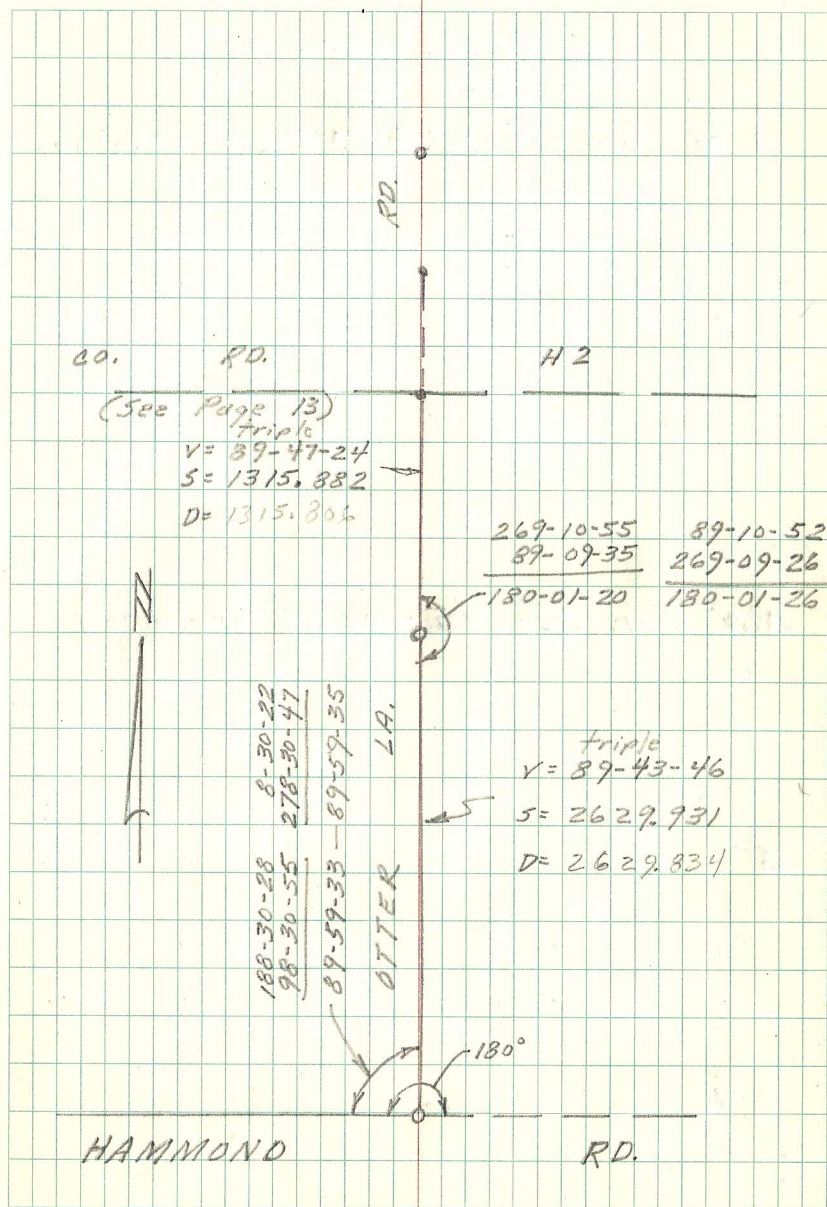 RD.
CO. RD. H 2
(See Page 13)
triple
V= 89-47-24
S= 1315.882
D= 1315.806
269-10-55 89-10-52
89-09-35 269-09-26
180-01-20 180-01-26
N
188-30-28 8-30-22
98-30-55 278-30-47
89-59-33 — 89-59-35
OTTER LA.
triple
V= 89-43-46
S= 2629.931
D= 2629.834
180°
HAMMOND RD.